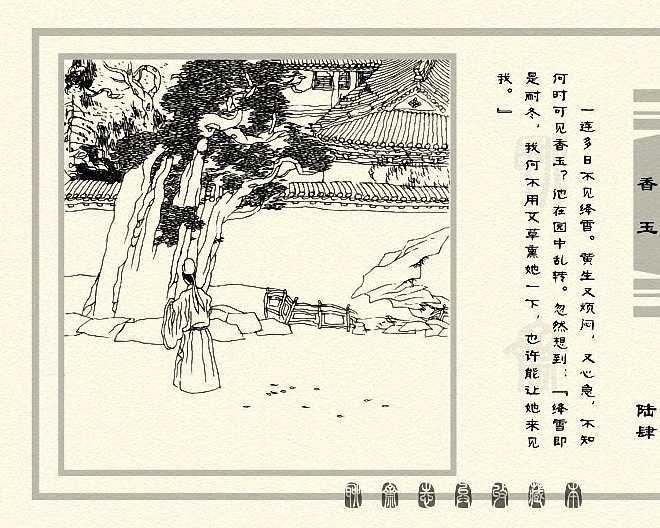 一连多日不见绛雪。黄生又烦闷，又心急，不知
何时可见香玉？他在园中乱转。忽然想到：“绛雪即
是耐冬，我何不用艾草熏她一下，也许能让她来见
我。”
香玉
陆肆
聊斋志异收藏本